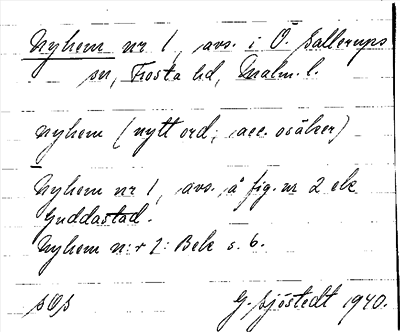 Nyhem nr 1, avs. i Ö. Sallerups
sn, Frosta hd, Malm. l.
nyhem (nytt ord; acc. osäker)
Nyhem nr 1, avs. å fig. nr 2 ek
Guddastad.
Nyhem n:r 1: Bek s. 6.
sOs G. Sjöstedt 1940.